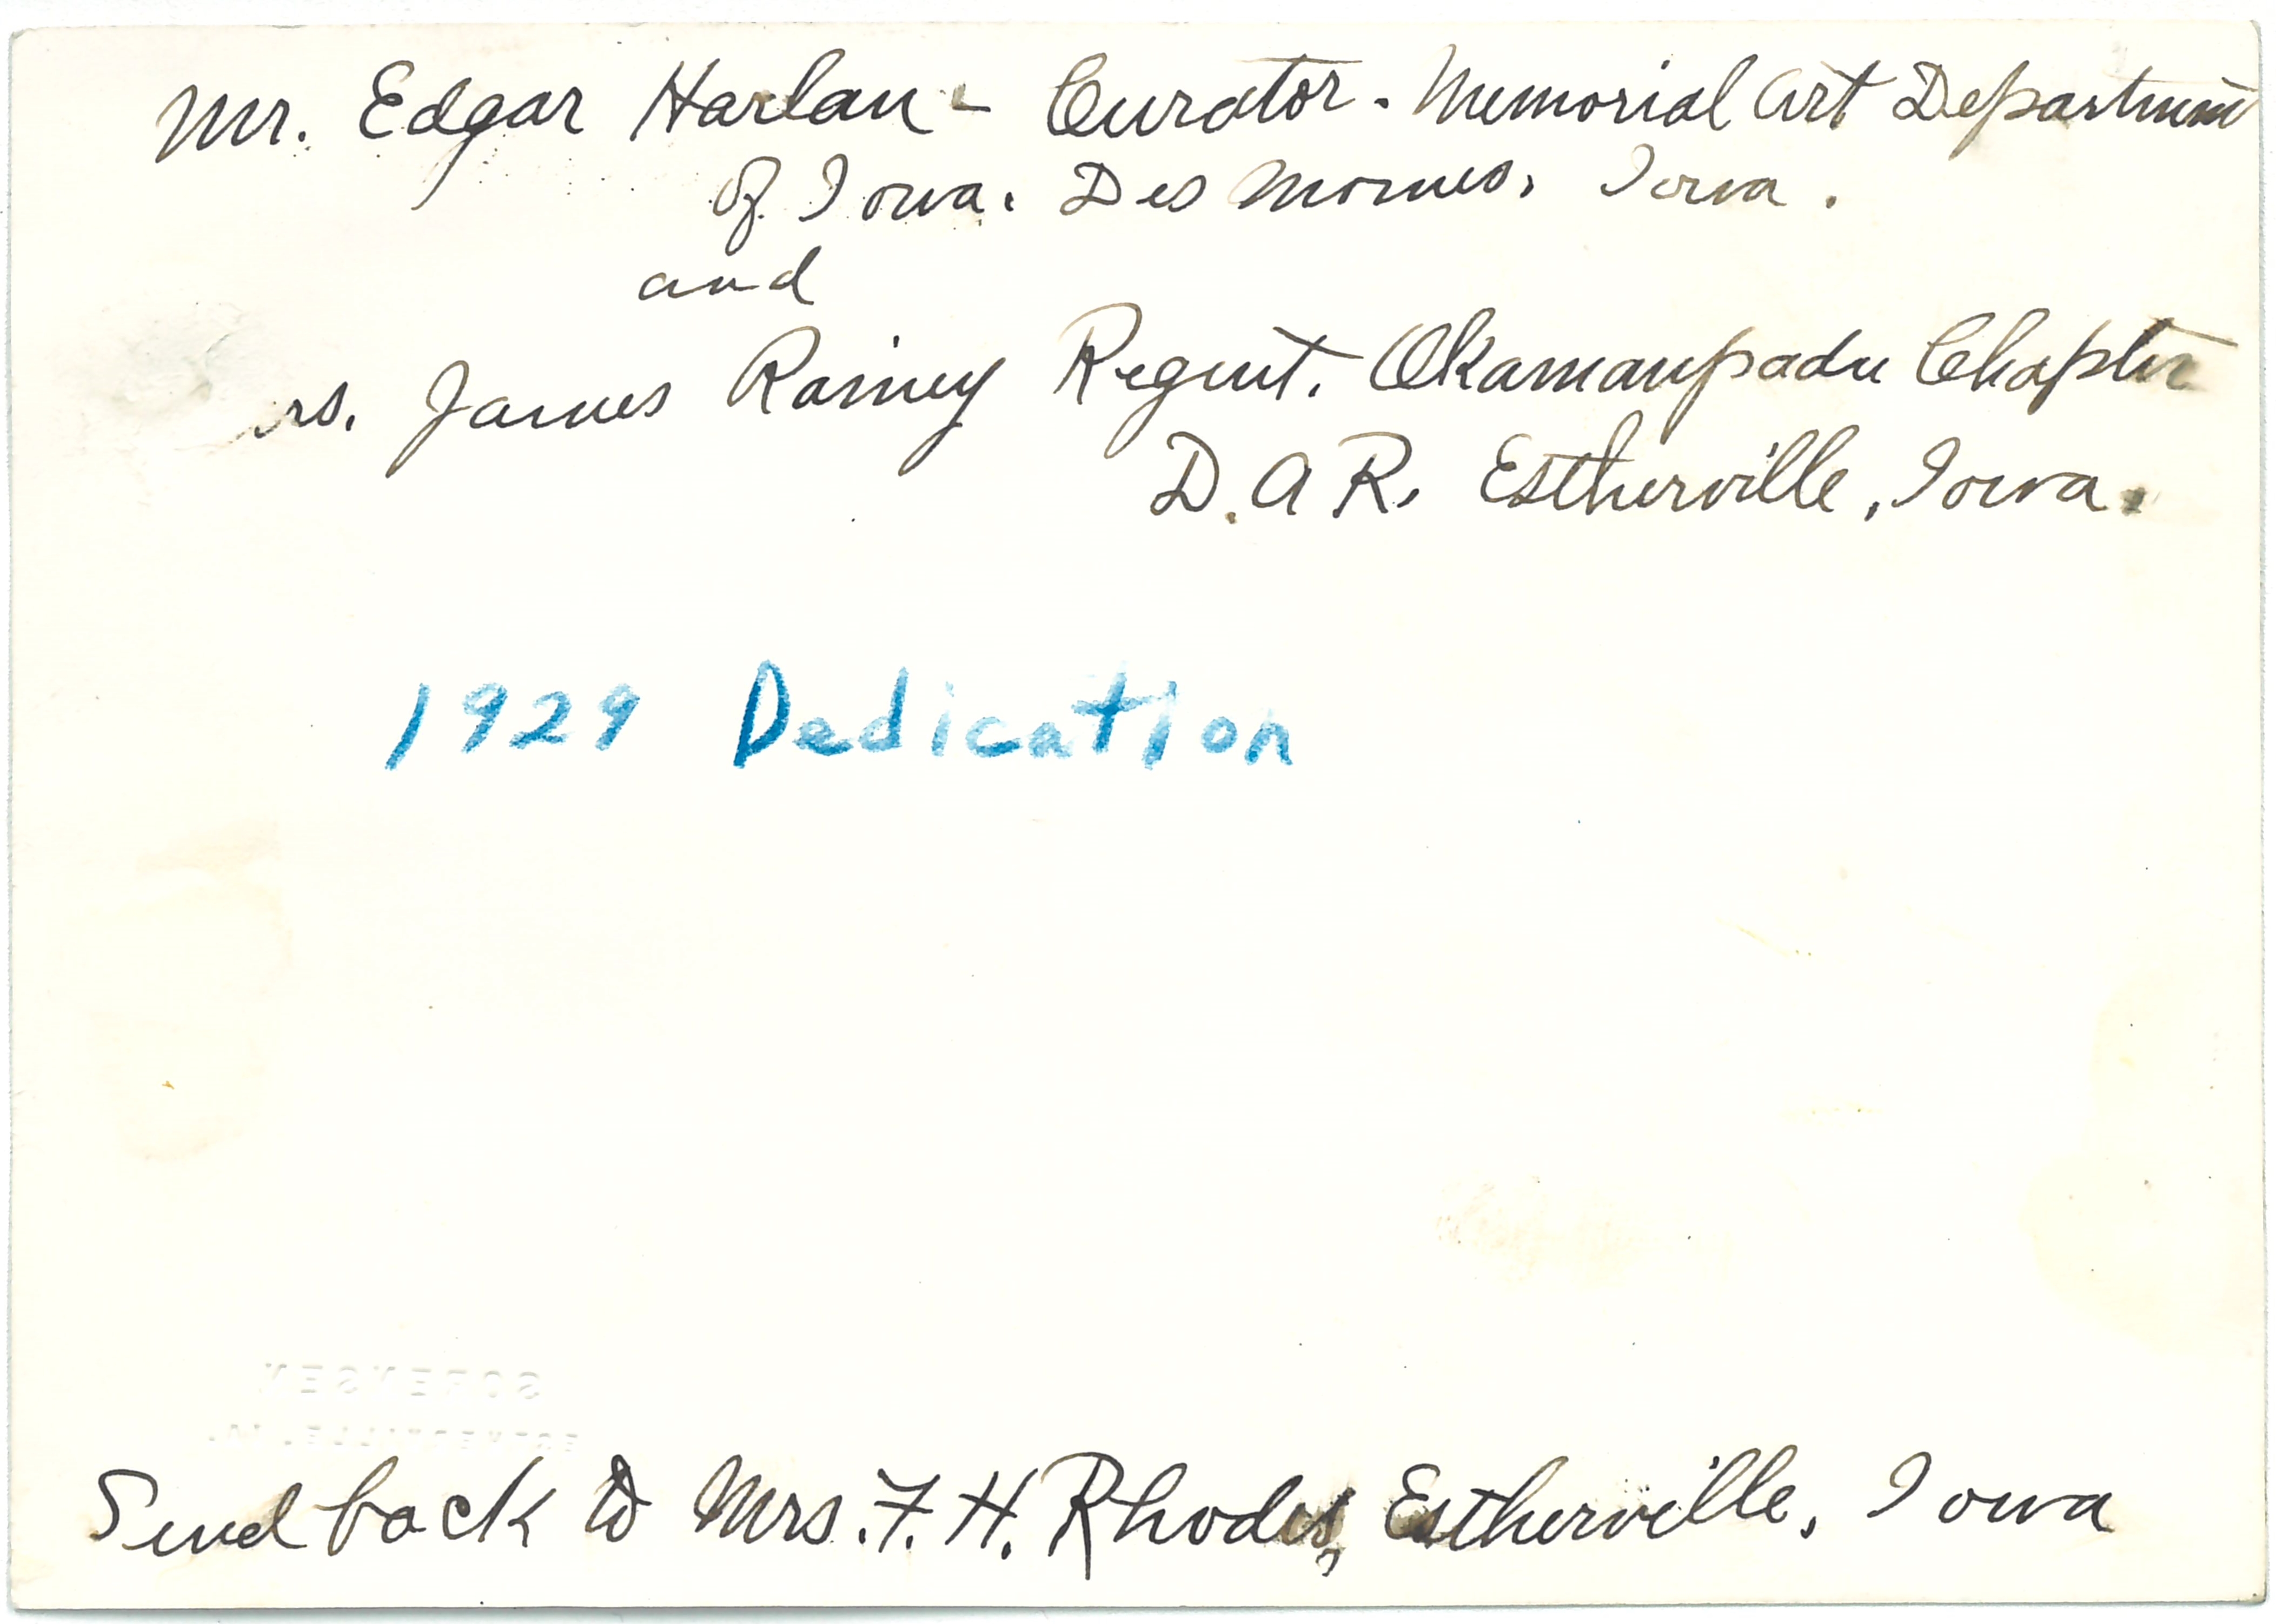 Mr. Edgar Harlan - Curator - Memorial Art Department
of Iowa. Des Moines, Iowa.
and
rs. James Rainey Regent. Okamanpadu Chapter
D. A R. Estherville, Iowa.
1929 Dedication
SORENSEN
ESTHERVILLE, IA.
Send back to Mrs. F. H. Rhodes, Estherville, Iowa